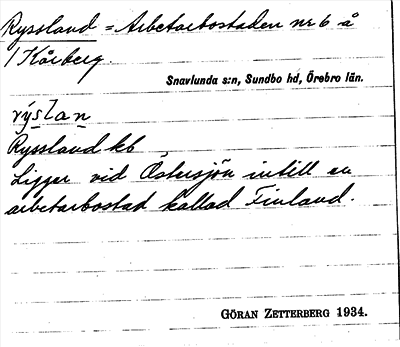 Ryssland = Arbetarbostaden nr 6 å
/ Kårberg.
Snavlunda s:n, Sundbo hd, Örebro län.
rýslan
Ryssland kb
Ligger vid Östersjön intill en
arbetarbostad kallad Finland.
GÖRAN ZETTERBERG 1934.